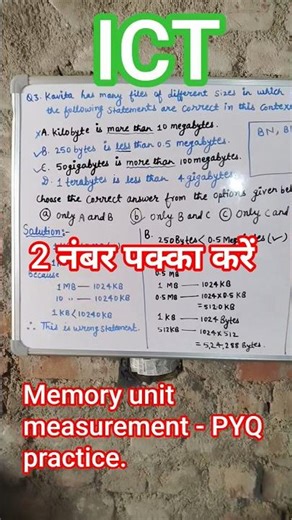 ICT
Q3. Kavita has many files of different sizes in which
the following statements are correct in this Contex
A. Kilobyte is more than 10 megabytes.
B. 250 bytes is less than 0.5 megabytes.
C. 50 gigabytes is more than 100 megabytes.
D. 1 terabyte is less than 4 gigabytes
Choose the correct answer from the options given bel
ⓐ only A and B ⓑ only B and C ⓒ only C and
BN, BN
Solution:-
B.
250 Bytes < 0.5 Megabytes (✓)
2 नंबर पक्का करें
because
0.5 MB
1 MB — 1024 KB
1 MB — 1024 KB
10 — 10240 KB
0.5 MB — 1024×0.5 KB
= 512.0 KB
1 KB < 10240 KB
1 KB — 1024 Bytes
∴ This is wrong statement.
512 KB — 1024×512
= 5,24,288 Bytes.
Memory unit
measurement - PYQ
practice.